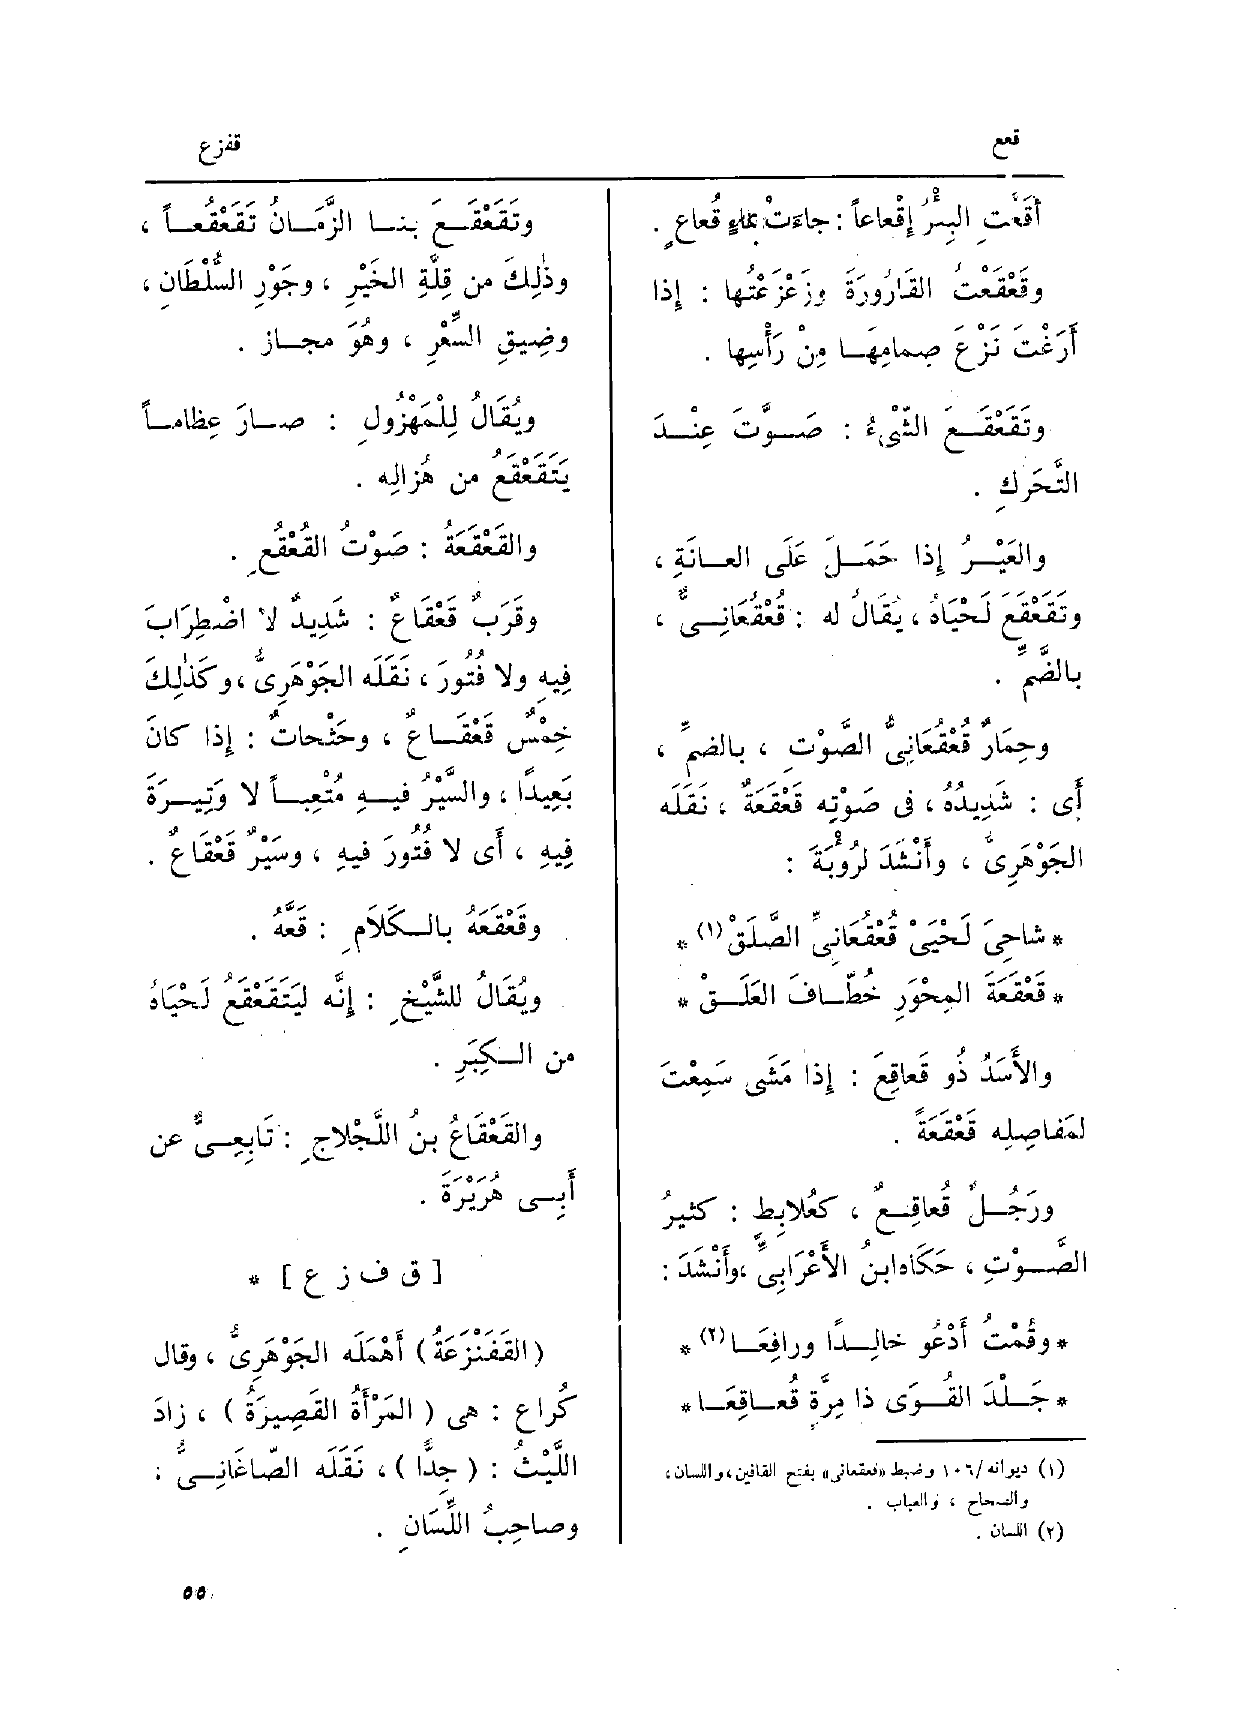 قعع
قفزع
أَقَعَّتِ البِئْرُ إِقْعاعاً : جاءَتْ بماءٍ قُعاعٍ .
وقَعْقَعْتُ القارُورَةَ وزَعْزَعْتُها : إِذا
أَرَغْتَ نَزْعَ صِمامِهَا مِنْ رَأْسِها .
وتَقَعْقَعَ الشَّىْءُ : صَوَّتَ عِنْدَ
التَّحَرك .
والعَيْرُ إِذا حَمَلَ عَلَى العانَةِ ،
وتَقَعْقَعَ لَحْيَاهُ ، يُقَالُ له : قُعْقُعَانِىٌّ ،
بالضَّمِّ .
وحِمَارٌ قُعْقُعَانِىُّ الصَّوْتِ ، بالضمِّ ،
أَى : شَدِيدُه ، فى صَوْتِه قَعْقَعَةٌ ، نَقَلَه
الجَوْهَرِىُّ ، وأَنْشَدَ لرُؤْبَةَ :
* شاحِىَ لَحْيَىْ قُعْقُعَانِىِّ الصَّلَقْ (١) *
* قَعْقَعَةَ المِحْوَرِ خُطَّافَ العَلَقْ *
والأَسَدُ ذُو قَعاقِعَ : إِذا مَشَى سَمِعْتَ
لمَفاصِلِه قَعْقَعَةً .
ورَجُلٌ قُعاقِعٌ ، كعُلابِطٍ : كثيرُ
الصَّوْتِ ، حَكَاه ابنُ الأَعْرَابِىِّ ، وأَنْشَدَ :
* وقُمْتُ أَدْعُو خالِدًا ورافِعَا (٢) *
* جَلْدَ القُوَى ذا مِرَّةٍ قُعاقِعَا *
(١) ديوانه /١٠٦ وضبط «قعقعانى» بفتح القافين ، واللسان ،
والصحاح ، والعباب .
(٢) اللسان .
وتَقَعْقَعَ بنا الزَّمانُ تَقَعْقُعاً ،
وذٰلِكَ من قِلَّةِ الخَيْرِ ، وجَوْرِ السُّلْطَانِ ،
وضِيقِ السِّعْرِ ، وهُوَ مجاز .
ويُقَالُ لِلْمَهْزُولِ : صارَ عِظاماً
يَتَقَعْقَعُ من هُزالِه .
والقَعْقَعَةُ : صَوْتُ القُعْقُعِ .
وقَرَبٌ قَعْقَاعٌ : شَدِيدٌ لا اضْطِرَابَ
فِيهِ ولا فُتُورَ ، نَقَلَه الجَوْهَرِىُّ ، وكَذٰلِكَ
خِمْسٌ قَعْقَاعٌ ، وحَثْحاثٌ : إِذا كانَ
بَعِيدًا ، والسَّيْرُ فيهِ مُتْعِباً لا وَتِيرَةَ
فِيهِ ، أَى لا فُتُورَ فيهِ ، وسَيْرٌ قَعْقَاعٌ .
وقَعْقَعَهُ بالكَلَامِ : قَعَّهُ .
ويُقَالُ للشَّيْخِ : إِنَّه لَيَتَقَعْقَعُ لَحْيَاهُ
من الكِبَرِ .
والقَعْقَاعُ بنُ اللَّجْلاجِ : تَابِعِىٌّ عن
أَبِى هُرَيْرَةَ .
[ ق ف ز ع ] *
(القَفَنْزَعَةُ) أَهْمَلَه الجَوْهَرِىُّ ، وقال
كُراع : هى ( المَرْأَةُ القَصِيرَةُ ) ، زادَ
اللَّيْثُ : ( جِدًّا ) ، نَقَلَه الصّاغَانِىُّ ،
وصاحِبُ اللِّسَانِ .
٥٥